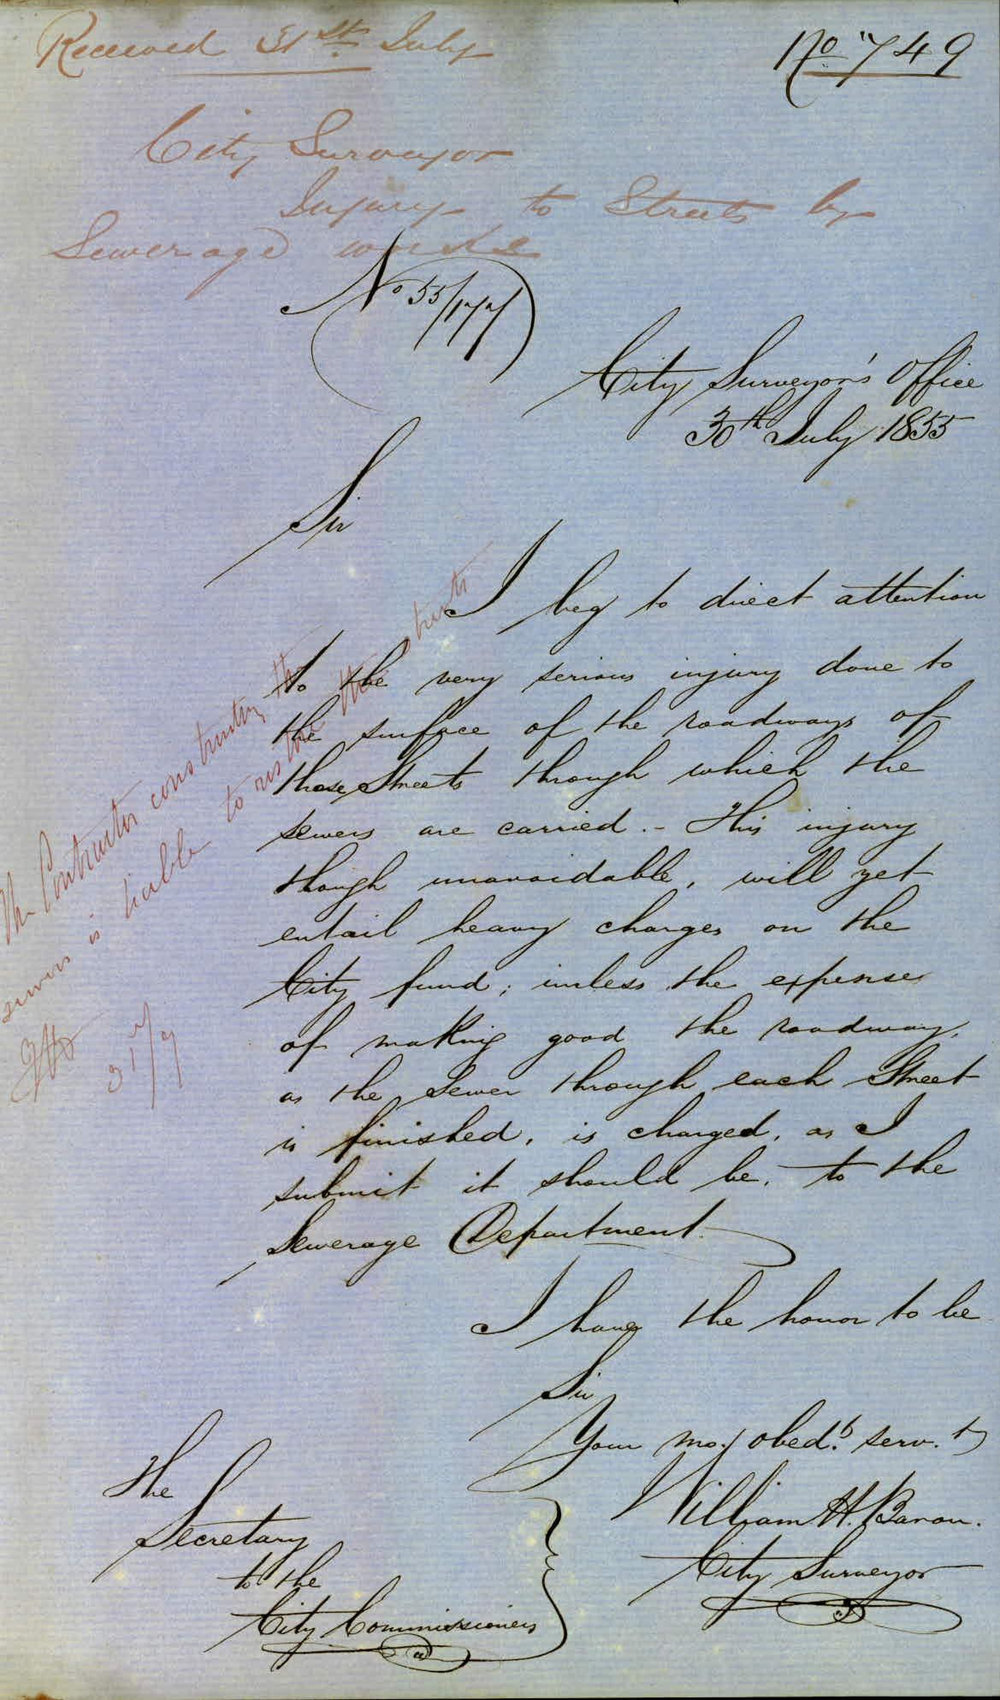 Received 31st July
No 749
City Surveyor
Injury to Streets by
Sewerage works
No 55/177
City Surveyor's Office
30th July 1855
Sir
I beg to direct attention
to the very serious injury done to
the surface of the roadways of
those Streets through which the
sewers are carried. - This injury
though unavoidable, will yet
entail heavy charges on the
City fund; unless the expenses
of making good the roadway,
as the Sewer through each Street
is finished, is charged, as I
submit it should be, to the
Sewerage Department.
The Contractor constructing the
sewers is liable to restore the streets
31/7
I have the honor to be
Sir
Your mo. obedt. servt.
William H. Baron.
City Surveyor
The
Secretary
to the
City Commissioners